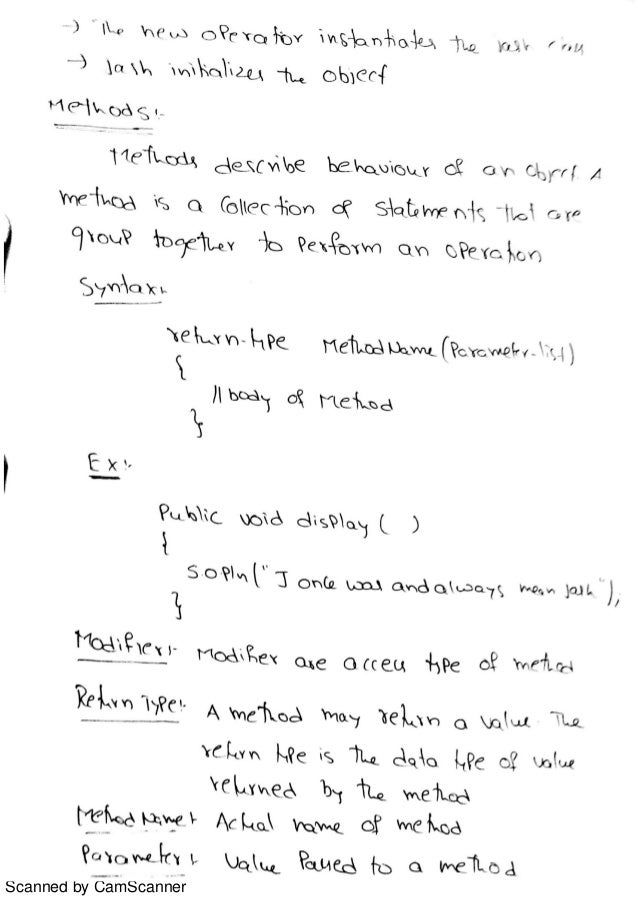 → The new operator instantiates the
→ Jash initializes the object
Methods:-
Methods describe behaviour of an object. A
method is a collection of statements that are
group together to perform an operation
Syntax:-
return-type MethodName (Parameter-list)
{
//body of Method
}
Ex:-
Public void display ( )
{
Sopln("I once was and always mean Jash");
}
Modifier:- Modifier are access type of method
Return Type:- A method may return a value. The
return type is the data type of value
returned by the method
Method Name:- Actual name of method
Parameter:- Value Passed to a method
Scanned by CamScanner